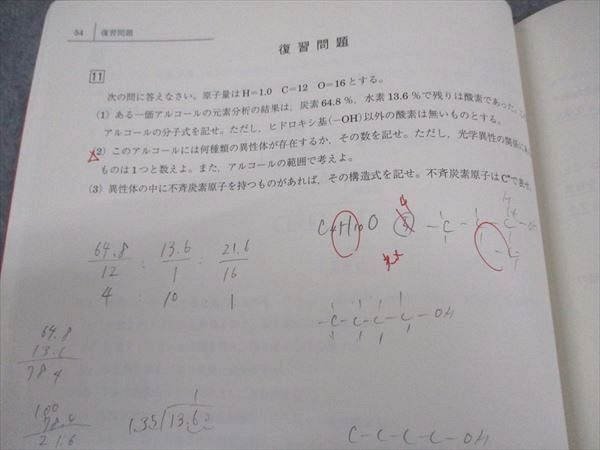 54 復習問題
復習問題
11
次の問に答えなさい。原子量はH=1.0 C=12 O=16とする。
(1) ある一価アルコールの元素分析の結果は、炭素64.8%、水素13.6%で残りは酸素であった。
アルコールの分子式を記せ。ただし、ヒドロキシ基(-OH)以外の酸素は無いものとする。
(2) このアルコールには何種類の異性体が存在するか、その数を記せ。ただし、光学異性の関係に
ものは1つと数えよ。また、アルコールの範囲で考えよ。
(3) 異性体の中に不斉炭素原子を持つものがあれば、その構造式を記せ。不斉炭素原子はC*で表せ
C4H10O
64.8/12 : 13.6/1 : 21.6/16
4 : 10 1
-C-C-C-C-OH
64.8
13.6
78.4
100
78.4
21.6
1
1.35)13.6
C-C-C-C-OH